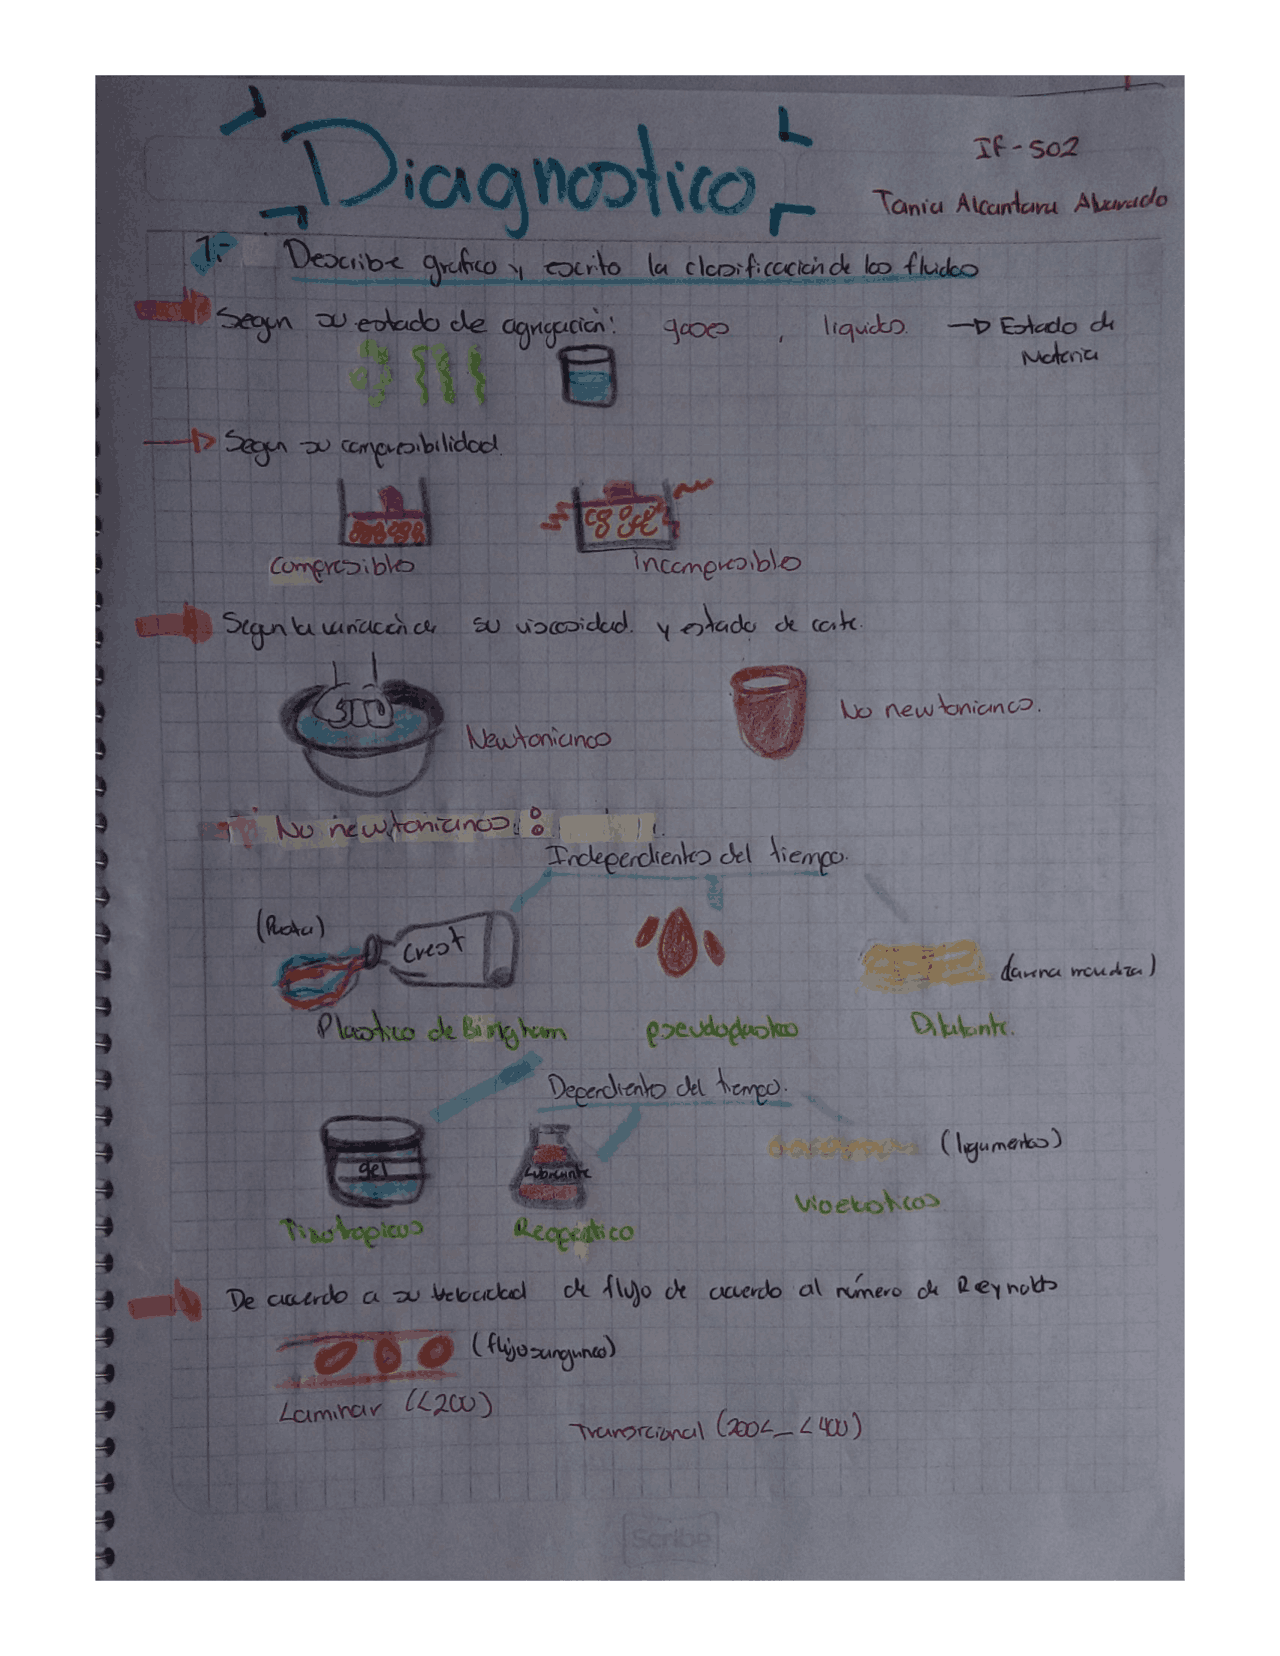 Diagnostico
IF-502
Tania Alcantara Alvarado
1.- Describe grafico y escrito la clasificación de los fluidos
Segun su estado de agregación: gases , liquidos. → Estado de
Materia
Segun su compresibilidad.
compresibles
incompresibles
Segun la variación de su viscosidad. y estado de corte.
Newtonianos
No newtonianos.
No newtonianos:
Independientes del tiempo.
(Pasta)
Crest
(arena mojada)
Plastico de Bingham
pseudoplastico
Dilatante.
Dependiento del tiempo.
gel
Lubricante
(legumentos)
Tixotropicos
Reopéctico
Vicoelasticos
De acuerdo a su velocidad de flujo de acuerdo al número de Reynolds
(flujo sanguineo)
Laminar (<200)
Transicional (200<_<400)
Scribe